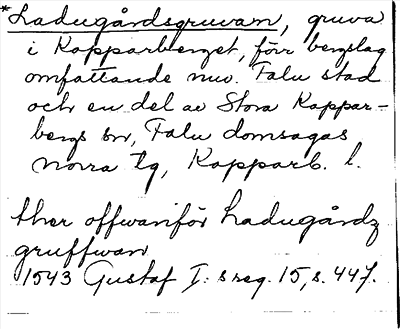 *Ladugårdsgruvan, gruva
i Kopparberget, förr bergslag
omfattande nuv. Falu stad
och en del av Stora Koppar-
bergs sn, Falu domsagas
norra tg, Kopparb. l.
ther offwanför Ladugårdz
gruffwan
1543 Gustaf I:s reg. 15, s. 447.